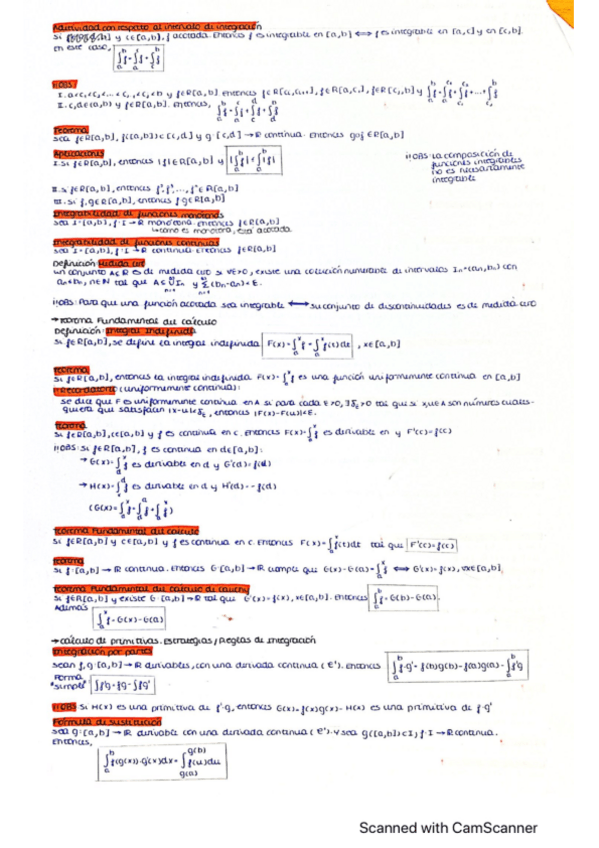 Aditividad con respecto al intervalo de integración
Si f∈R[a,b] y c∈[a,b], f acotada. Entonces f es integrable en [a,b] ⟺ f es integrable en [a,c] y en [c,b].
En este caso, ∫ₐᵇ f = ∫ₐᶜ f + ∫꜀ᵇ f
!!OBS/
II. c,d,e∈[a,b] y f∈R[a,b]. Entonces,
Teorema
Sea f∈R[a,b], f([a,b])⊂[c,d] y g:[c,d]→ℝ continua. Entonces g∘f∈R[a,b]
Aplicaciones
I. Si f∈R[a,b], entonces |f|∈R[a,b] y |∫ₐᵇ f| ≤ ∫ₐᵇ |f|
!!OBS: La composición de
funciones integrables
no es necesariamente
integrable
II. Si f∈R[a,b], entonces f², f³, ..., fⁿ∈R[a,b]
III. Si f,g∈R[a,b], entonces f·g∈R[a,b]
Integrabilidad de funciones monótonas
Sea I=[a,b], f:I→ℝ monótona. Entonces f∈R[a,b]
↳como es monótona, está acotada.
Integrabilidad de funciones continuas
Sea I=[a,b], f:I→ℝ continua. Entonces f∈R[a,b]
Definición: Medida cero
Un conjunto A⊂ℝ es de medida cero si ∀ε>0, existe una colección numerable de intervalos Iₙ=(aₙ,bₙ) con
aₙ<bₙ, n∈ℕ tal que A⊂∪Iₙ y Σ(bₙ-aₙ)<ε.
!!OBS: Para que una función acotada sea integrable ⟷ su conjunto de discontinuidades es de medida cero
→Teorema Fundamental del Cálculo
Definición: Integral Indefinida
Si f∈R[a,b], se define la integral indefinida F(x)=∫ₐˣ f = ∫ₐˣ f(t)dt, x∈[a,b]
Teorema
Si f∈R[a,b], entonces la integral indefinida F(x)=∫ₐˣ f es una función uniformemente continua en [a,b]
Recordatorio (uniformemente continua):
Se dice que F es uniformemente continua en A si para cada ε>0, ∃δε>0 tal que si x,u∈A son números cuales-
quiera que satisfacen |x-u|<δε, entonces |F(x)-F(u)|<ε.
Teorema
Si f∈R[a,b], c∈[a,b] y f es continua en c. Entonces F(x)=∫ₐˣ f es derivable en y F'(c)=f(c)
!!OBS: Si f∈R[a,b], f es continua en d∈[a,b]:
→ G(x)=∫ₐˣ f es derivable en d y G'(d)=f(d)
→ H(x)=∫ f es derivable en d y H'(d)=-f(d)
Teorema Fundamental del Cálculo
Si f∈R[a,b] y c∈[a,b] y f es continua en c. Entonces F(x)=∫ₐˣ f(t)dt tal que F'(c)=f(c)
Teorema
Si f:[a,b]→ℝ continua. Entonces G:[a,b]→ℝ cumple que G(x)-G(a)=∫ₐˣ f ⟺ G'(x)=f(x), ∀x∈[a,b]
Teorema Fundamental del cálculo de Cauchy
Si f∈R[a,b] y existe G:[a,b]→ℝ tal que G'(x)=f(x), x∈[a,b]. Entonces ∫ₐᵇ f = G(b)-G(a).
Además
∫ₐˣ f = G(x)-G(a)
→cálculo de primitivas. Estrategias/Reglas de Integración
Integración por partes
Sean f,g:[a,b]→ℝ derivables, con una derivada continua (C¹). Entonces ∫ₐᵇ f·g' = f(b)g(b)-f(a)g(a)-∫ₐᵇ f'g
Forma
simple: ∫f'g = fg - ∫fg'
!!OBS Si H(x) es una primitiva de f'·g, entonces G(x)=f(x)g(x)-H(x) es una primitiva de f·g'
Fórmula de sustitución
Sea g:[a,b]→ℝ derivable con una derivada continua (C¹). y sea g([a,b])⊂I, f:I→ℝ continua.
Entonces,
∫ₐᵇ f(g(x))·g'(x)dx = ∫ f(u)du
g(b)
g(a)
Scanned with CamScanner